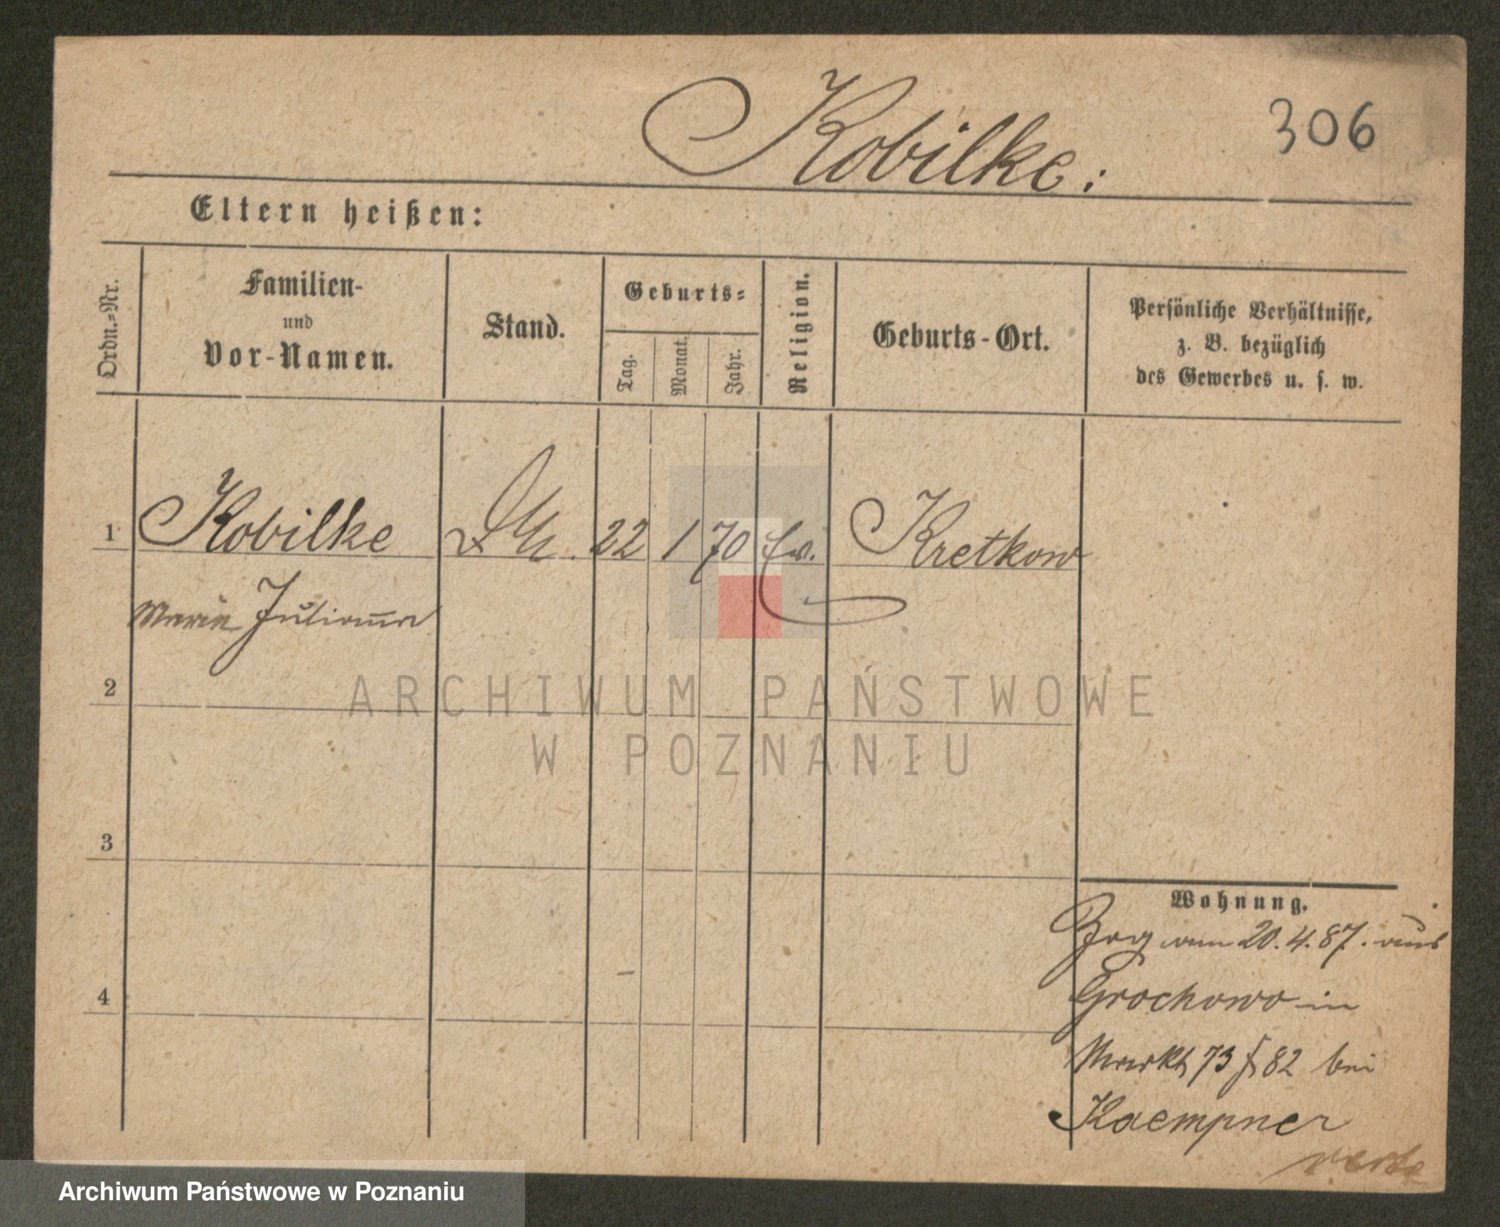 306
Kobilke:
Eltern heißen:
Ordn.-Nr.
Familien-
und
Vor-Namen.
Stand.
Geburts-
Tag.
Monat.
Jahr.
Religion.
Geburts-Ort.
Persönliche Verhältnisse,
z. B. bezüglich
des Gewerbes u. s. w.
1 Kobilke 22 1 70 Ev. Kretkow
Maria Julianna
2
3
4
Wohnung.
Zog am 20.4.87. aus
Grochowo in
Markt 73 82 bei
Kaempner
ARCHIWUM PAŃSTWOWE
W POZNANIU
Archiwum Państwowe w Poznaniu